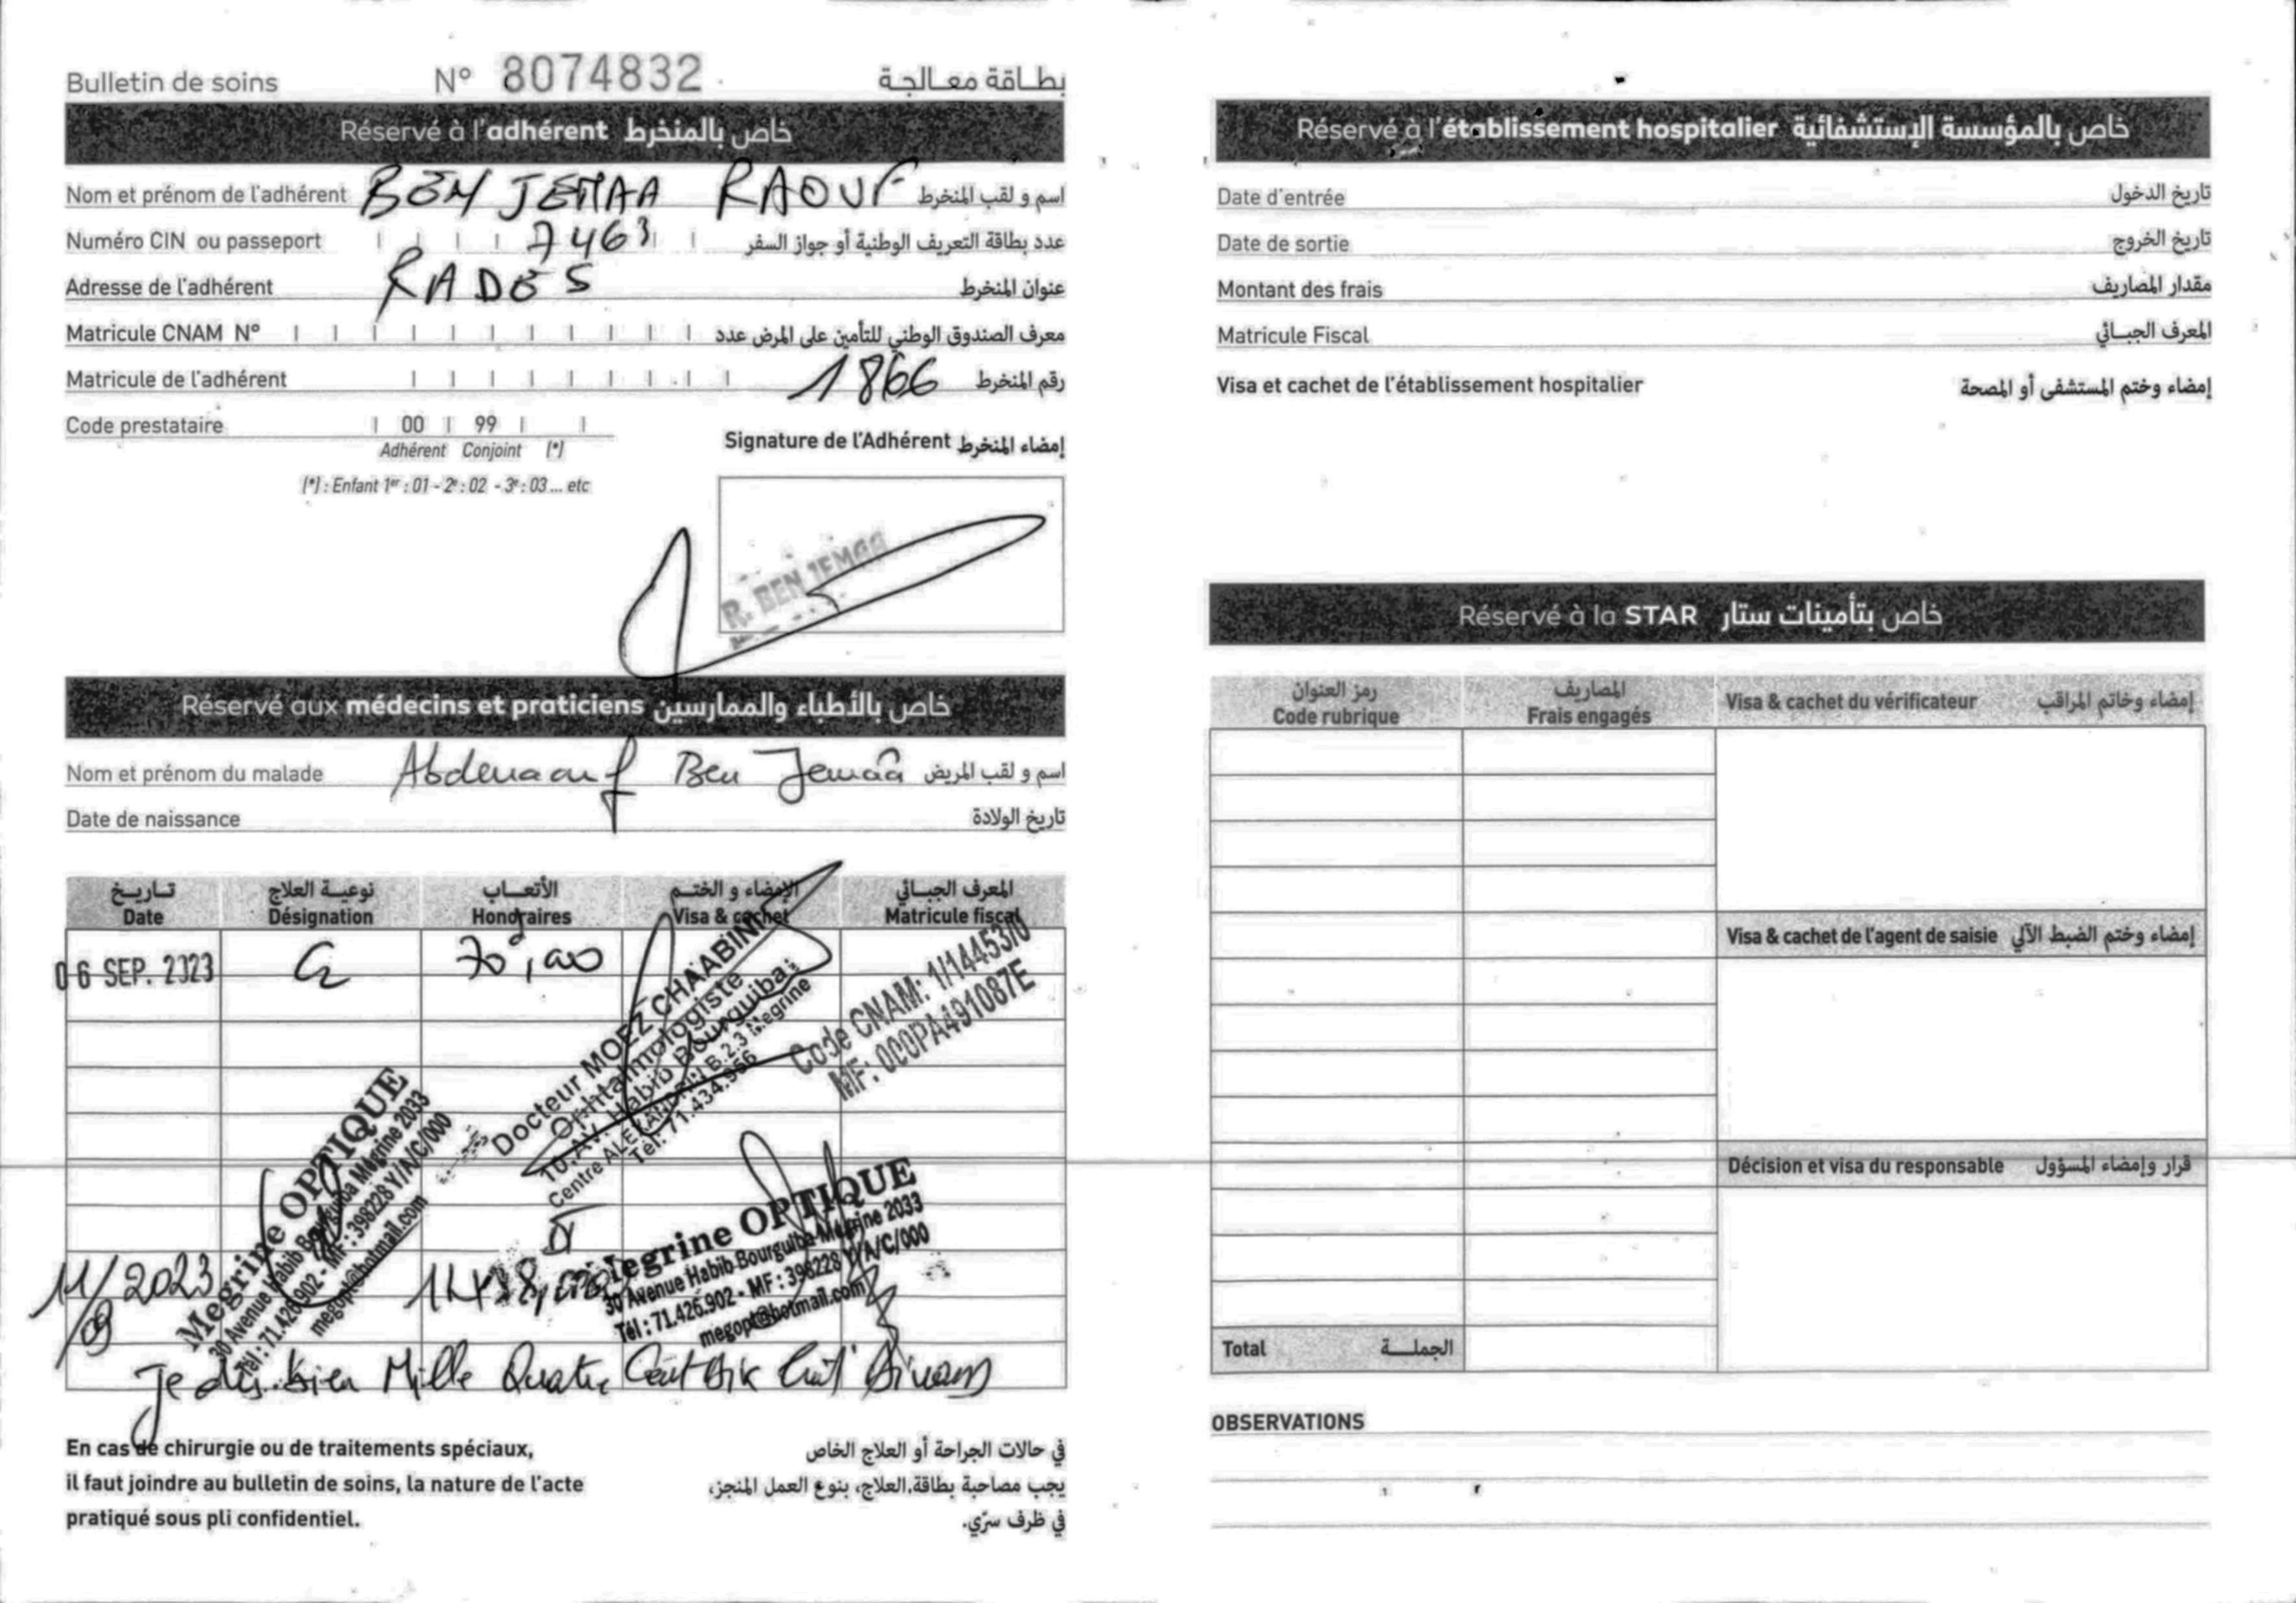 Bulletin de soins N° 8074832 بطاقة معالجة
Réservé à l'adhérent خاص بالمنخرط
Nom et prénom de l'adhérent BEN JEMAA RAOUF اسم و لقب المنخرط
Numéro CIN ou passeport 7463 عدد بطاقة التعريف الوطنية أو جواز السفر
Adresse de l'adhérent RADES عنوان المنخرط
Matricule CNAM N° معرف الصندوق الوطني للتأمين على المرض عدد
Matricule de l'adhérent 1866 رقم المنخرط
Code prestataire 00 99
Adhérent Conjoint (*)
(*) : Enfant 1er : 01 - 2e : 02 - 3e : 03 ... etc
Signature de l'Adhérent إمضاء المنخرط
R. BEN JEMAA
Réservé aux médecins et praticiens خاص بالأطباء والممارسين
Nom et prénom du malade Abderaouf Ben Jemaâ اسم و لقب المريض
Date de naissance تاريخ الولادة
تاريخ نوعية العلاج الأتعاب الإمضاء و الختم المعرف الجبائي
Date Désignation Honoraires Visa & cachet Matricule fiscal
06 SEP. 2023 C2 70d,000
Docteur MOEZ CHAABINI
Ophtalmologiste
10, AV. Habib Bourguiba
Centre ALEXANDRIN B.2.3 Megrine
Tél: 71.434.956
Code CNAM: 1/14453/0
MF: 000PA491087E
Megrine OPTIQUE
30 Avenue Habib Bourguiba Mégrine 2033
Tél : 71.426.902 - MF : 398228 Y/A/C/000
megopt@hotmail.com
11/09/2023 1418,000
Megrine OPTIQUE
30 Avenue Habib Bourguiba Mégrine 2033
Tél : 71.426.902 - MF : 398228 Y/A/C/000
megopt@hotmail.com
Je dis bien Mille Quatre Cent Dix Huit Dinars
En cas de chirurgie ou de traitements spéciaux,
il faut joindre au bulletin de soins, la nature de l'acte
pratiqué sous pli confidentiel.
في حالات الجراحة أو العلاج الخاص
يجب مصاحبة بطاقة العلاج، بنوع العمل المنجز،
في ظرف سرّي.
Réservé à l'établissement hospitalier خاص بالمؤسسة الإستشفائية
Date d'entrée تاريخ الدخول
Date de sortie تاريخ الخروج
Montant des frais مقدار المصاريف
Matricule Fiscal المعرف الجبائي
Visa et cachet de l'établissement hospitalier إمضاء وختم المستشفى أو المصحة
Réservé à la STAR خاص بتأمينات ستار
رمز العنوان المصاريف
Code rubrique Frais engagés Visa & cachet du vérificateur إمضاء وخاتم المراقب
Visa & cachet de l'agent de saisie إمضاء وختم الضبط الآلي
Décision et visa du responsable قرار وإمضاء المسؤول
Total الجملة
OBSERVATIONS